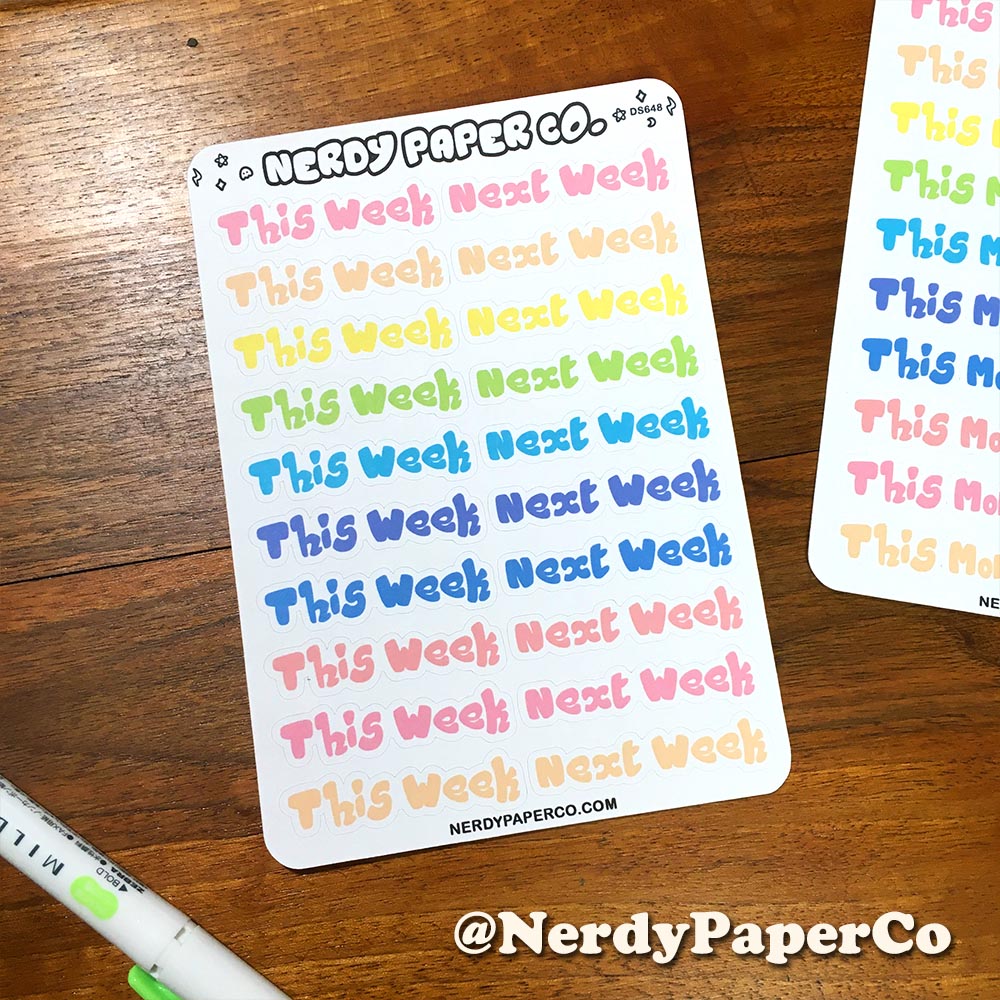 NERDY PAPER CO.
DS648
This Week Next Week
This Week Next Week
This Week Next Week
This Week Next Week
This Week Next Week
This Week Next Week
This Week Next Week
This Week Next Week
This Week Next Week
This Week Next Week
NERDYPAPERCO.COM
This
This
This
This
This
This
This
This
This
This
NE
MIL
BOLD
ZEBRA
@NerdyPaperCo